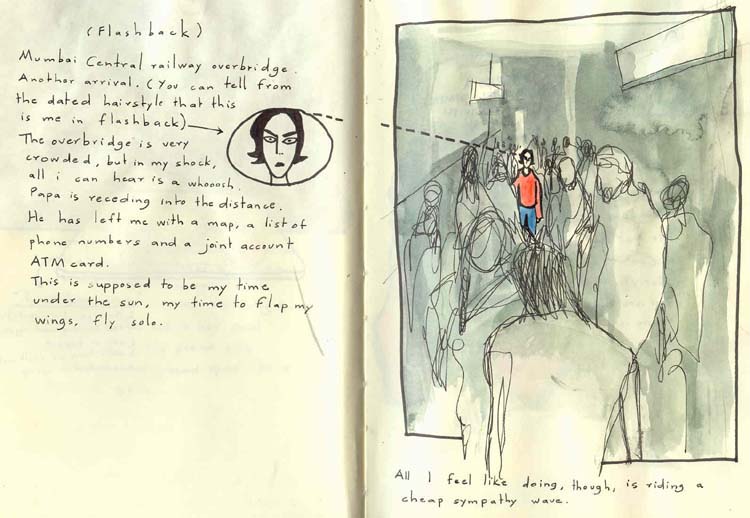 (Flashback)
Mumbai Central railway overbridge.
Another arrival. (You can tell from
the dated hairstyle that this
is me in flashback)
The overbridge is very
crowded, but in my shock,
all i can hear is a whoooch.
Papa is receding into the distance.
He has left me with a map, a list of
phone numbers and a joint account
ATM card.
This is supposed to be my time
under the sun, my time to flap my
wings, fly solo.
All I feel like doing, though, is riding a
cheap sympathy wave.